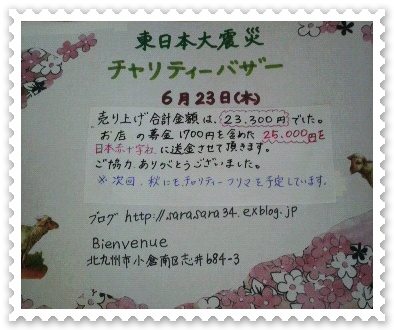 東日本大震災
チャリティーバザー
6月23日(木)
売り上げ合計金額は、23.300円でした。
お店の募金1700円を含めた25.000円を
日本赤十字社に送金させて頂きます。
ご協力、ありがとうございました。
※次回、秋にも、チャリティーフリマを予定しています。
ブログ http://sarasara34.exblog.jp
Bienvenue
北九州市小倉南区志井684-3